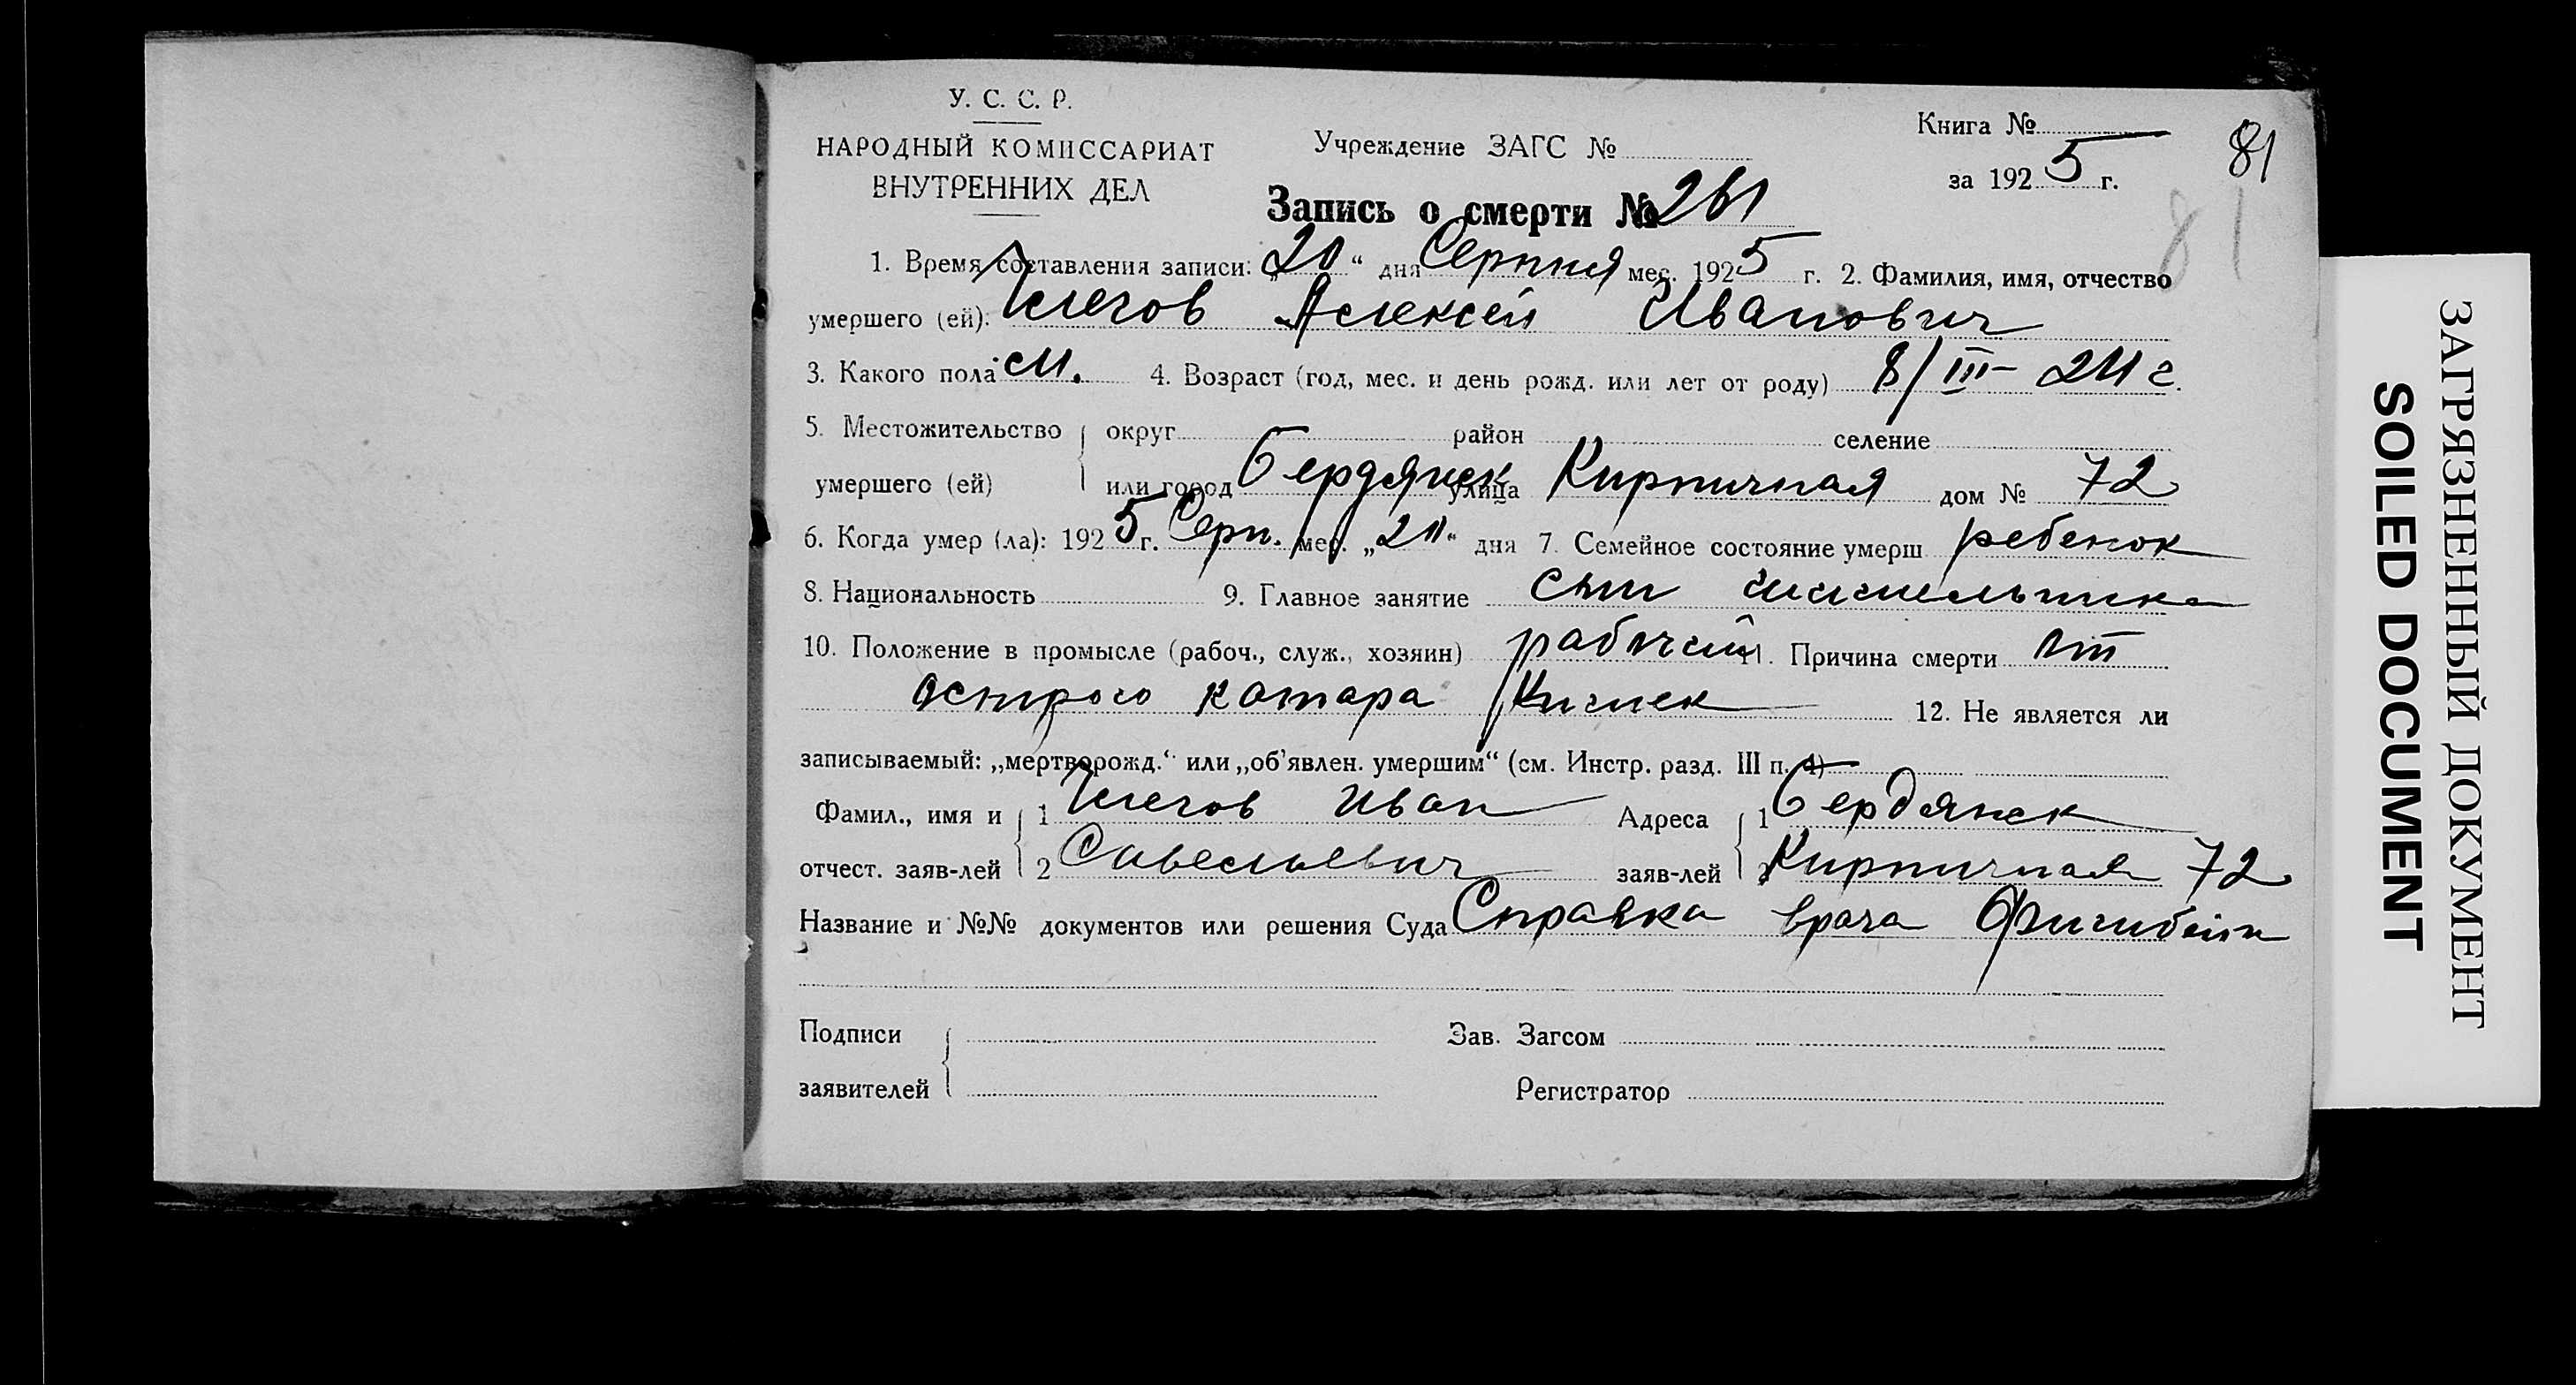 У. С. С. Р.
НАРОДНЫЙ КОМИССАРИАТ
ВНУТРЕННИХ ДЕЛ
Учреждение ЗАГС №
Книга №
за 1925 г.
81
81
Запись о смерти № 261
1. Время составления записи: „20“ дня Серпня мес. 1925 г. 2. Фамилия, имя, отчество
умершего (ей): Алексей Иванович
3. Какого пола м. 4. Возраст (год, мес. и день рожд. или лет от роду) 8/III-
5. Местожительство округ район селение
умершего (ей) или город Бердянск улица Кирпичная дом № 72
6. Когда умер (ла): 1925 г. Серп. мес. дня 7. Семейное состояние умерш ребенок
8. Национальность 9. Главное занятие сын
10. Положение в промысле (рабоч., служ., хозяин) рабочий 11. Причина смерти от
острого катара кишек 12. Не является ли
записываемый: „мертворожд.“ или „об'явлен. умершим“ (см. Инстр. разд. III п. 4)
Фамил., имя и 1 Иван Адреса 1 Бердянск
отчест. заяв-лей 2 Савельевич заяв-лей 2 Кирпичная 72
Название и №№ документов или решения Суда Справка врача
Подписи Зав. Загсом
заявителей Регистратор
ЗАГРЯЗНЕННЫЙ ДОКУМЕНТ
SOILED DOCUMENT